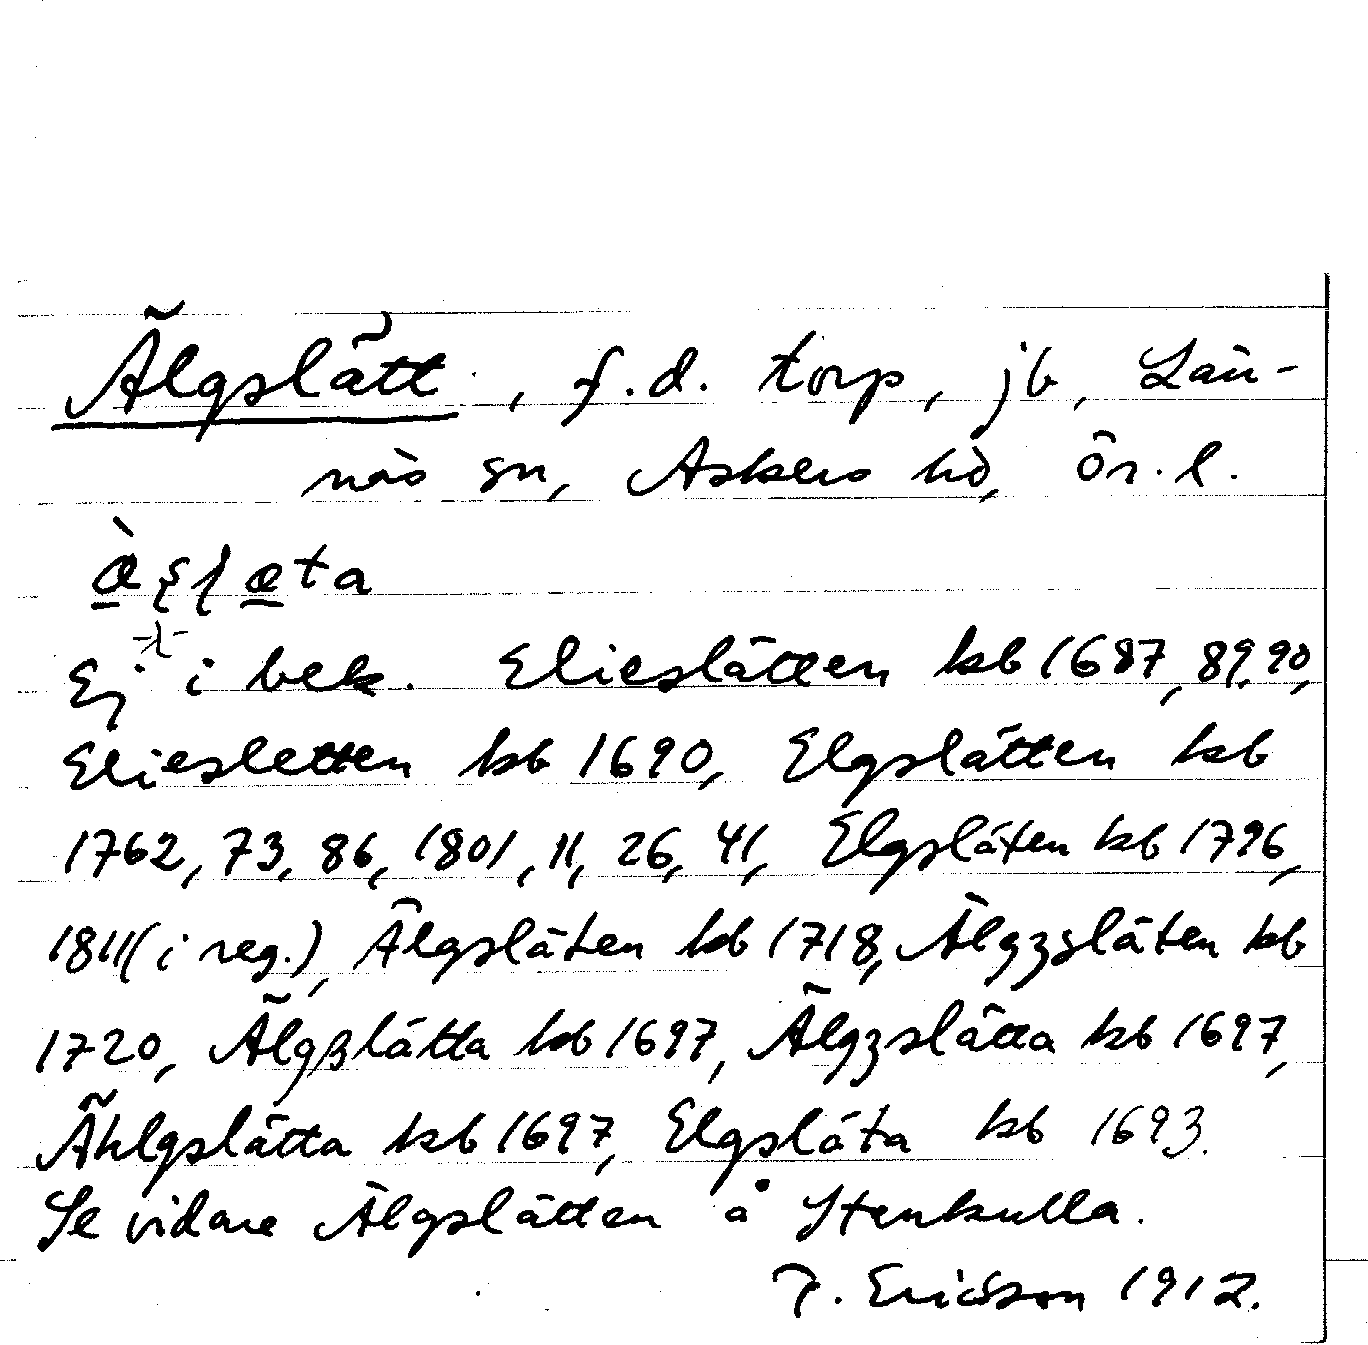 Älgslätt, f.d. torp, jb, Län-
näs sn, Askers hd, Ör. l.
Ej i bek. Elieslätten kb 1687, 89, 90,
Eliesletten kb 1690, Elgslätten kb
1762, 73, 86, 1801, 11, 26, 41, Elgsläten kb 1796,
1811 (i reg.), Älgsläten kb 1718, Älgzsläten kb
1720, Älgßlätta kb 1697, Älgzslätta kb 1697,
Ählgslätta kb 1697, Elgsläta kb 1693.
Se vidare Älgslätten å Stenkulla.
J. Ericsson 1912.